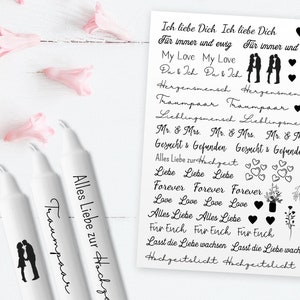 Ich liebe Dich Ich liebe Dich
Für immer und ewig Für immer und
My Love My Love
Du & Ich Du & Ich
Herzensmensch Herzensmensch
Traumpaar Traumpaar
Lieblingsmensch Lieblingsmens
Mr. & Mrs. Mr. & Mrs. Mr. &
Gesucht & Gefunden Gesucht & Gefunden
Alles Liebe zur Hochzeit
Liebe Liebe Liebe
Forever Forever Forever
Love Love Love Love
Alles Liebe Alles Liebe
Für Euch Für Euch Für Euch
Lasst die Liebe wachsen Lasst die Liebe
Hochzeitslicht Hochzeitslicht
Traumpaar
Alles Liebe zur Hochze